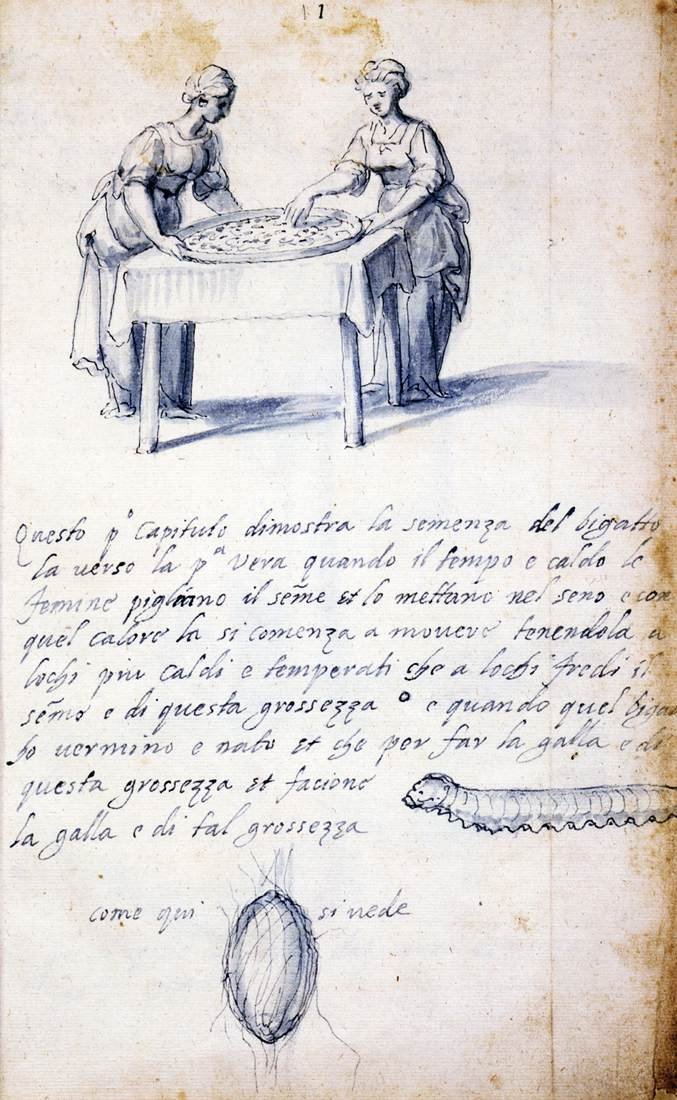 1
Questo p.º Capitulo dimostra la semenza del bigatto
la verso la p.ª Vera quando il tempo e caldo le
femine pigliano il seme et lo mettano nel seno e con
quel calore la si comenza a movere tenendola a
lochi piu caldi e temperati che a lochi fredi il
seme e di questa grossezza o e quando quel biga
to vermino e nato et che per far la galla e di
questa grossezza et facione
la galla e di tal grossezza
come qui si vede